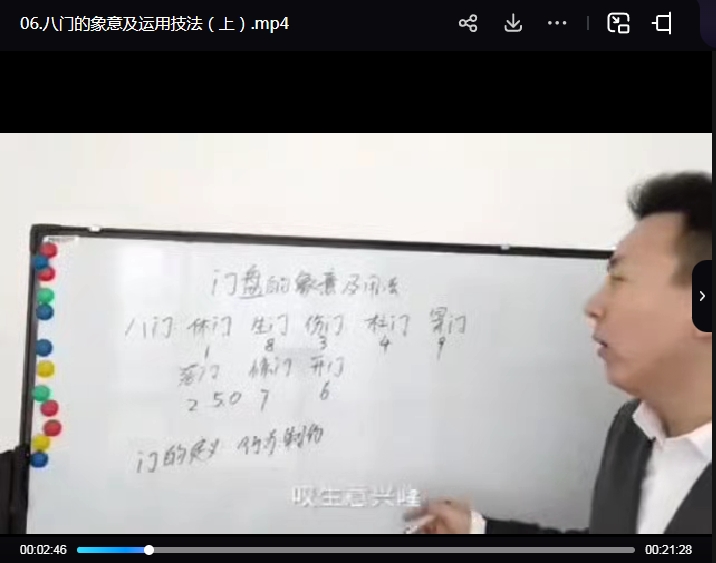 06.八门的象意及运用技法（上）.mp4
门盘的象意及用法
八门 休门 生门 伤门 杜门 景门
1 8 3 4 9
死门 惊门 开门
2 5.0 7 6
门的定义
00:02:46
00:21:28